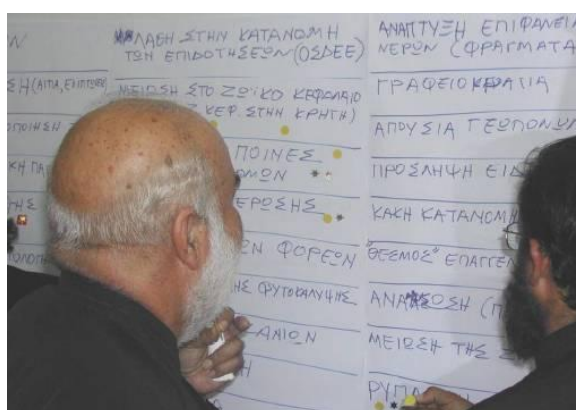 ΣΗ (ΛΙΠΑ, ΕΚΠΤΩΣΗ)
ΟΠΟΙΗΣΗ
ΚΗ ΠΑ
ΗΣ
ΛΑΣΗ ΣΤΗΝ ΚΑΤΑΝΟΜΗ
ΤΩΝ ΕΠΙΔΟΤΗΣΕΩΝ (ΟΣΔΕΕ)
ΜΕΙΩΣΗ ΣΤΟ ΖΩΪΚΟ ΚΕΦΑΛΑΙΟ
ΚΕΦ. ΣΤΗΝ ΚΡΗΤΗ)
ΠΟΙΝΕΣ
ΟΜΩΝ
ΕΡΩΣΗΣ
ΩΝ ΦΟΡΕΩΝ
ΗΣ ΦΥΤΟΚΑΛΥΨΗΣ
ΑΝΑΠΤΥΞΗ ΕΠΙΦΑΝΕΙΑ
ΝΕΡΩΝ (ΦΡΑΓΜΑΤΑ
ΓΡΑΦΕΙΟΚΡΑΤΙΑ
ΑΠΟΥΣΙΑ ΓΕΩΠΟΝΩΝ
ΠΡΟΣΛΗΨΗ ΕΙΔ
ΚΑΚΗ ΚΑΤΑΝΟΜΗ
"ΘΕΣΜΟΣ" ΕΠΑΓΓΕΛ
ΑΝΑ ΣΩΣΗ (Π
ΜΕΙΩΣΗ ΤΗΣ
ΡΥΠΑ